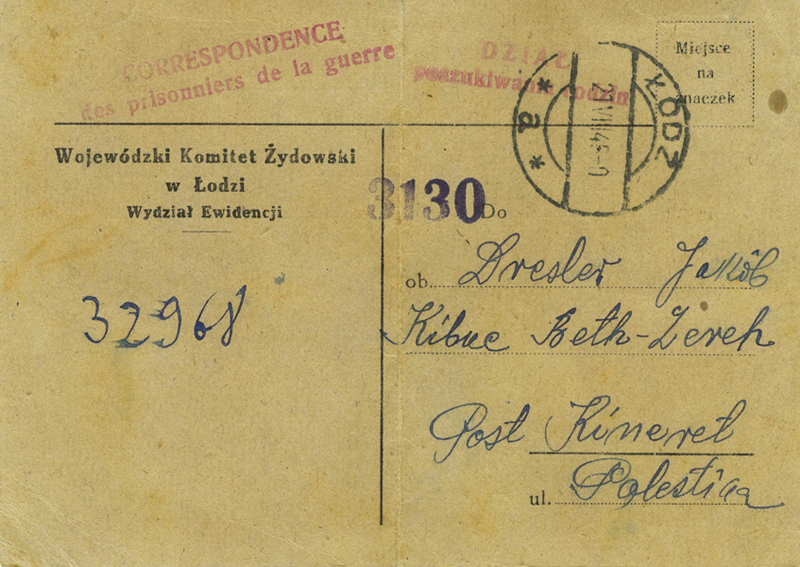 CORRESPONDENCE
des prisonniers de la guerre
DZIAŁ
poszukiwania rodzin
Miejsce
na
znaczek
ŁÓDŹ
* a *
Wojewódzki Komitet Żydowski
w Łodzi
Wydział Ewidencji
3130
Do
ob. Dresler Jakób
Kibuc Beth-Zereh
Post Kineret
ul. Palestina
32968